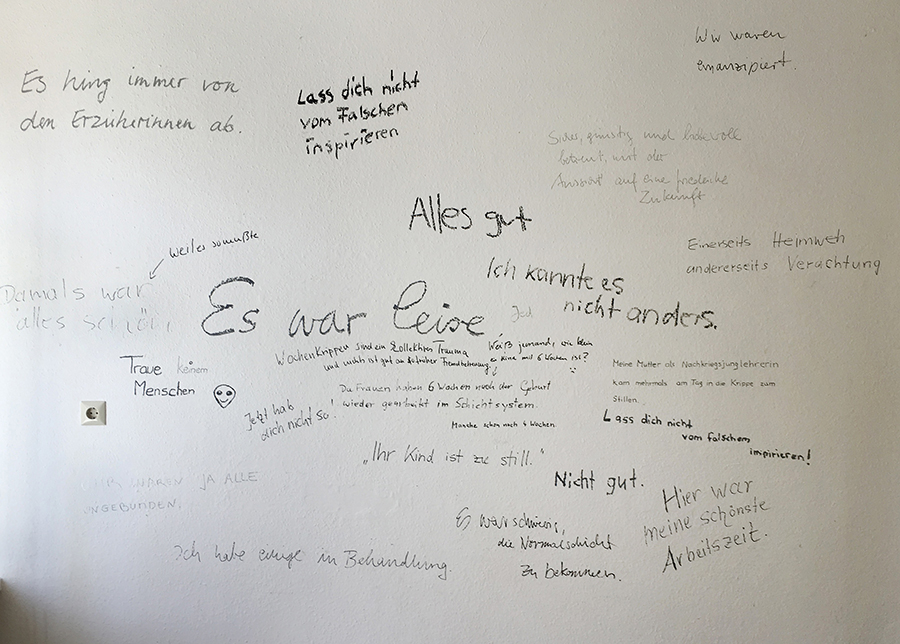 Wir waren
emanzipiert.
Es hing immer von
den Erzieherinnen ab.
Lass dich nicht
vom Falschen
inspirieren
Sicher, günstig und liebevoll
betreut, mit der
Aussicht auf eine friedliche
Zukunft
Alles gut
weil es so mußte
Einerseits Heimweh
andererseits Verachtung
Damals war
alles schön
Es war leise
Ich kannte es
nicht anders.
Wochenkrippen sind ein kollektives Trauma
und nicht ist gut an früher Fremdbetreuung
Weiß jemand, wie klein
es Kine mit 6 Wochen ist?
Traue keinem
Menschen
Meine Mutter als Nachkriegsjunglehrerin
kam mehrmals am Tag in die Krippe zum
Stillen.
Die Frauen haben 6 Wochen nach der Geburt
wieder gearbeitet im Schichtsystem.
Manche schon nach 4 Wochen
Jetzt hab
dich nicht so!
Lass dich nicht
vom falschem
inspirieren!
„Ihr Kind ist zu still."
Nicht gut.
WIR WAREN JA ALLE
ANGEBUNDEN.
Hier war
meine schönste
Arbeitszeit.
Es war schwierig,
die Normalschicht
zu bekommen.
Ich habe einige in Behandlung.